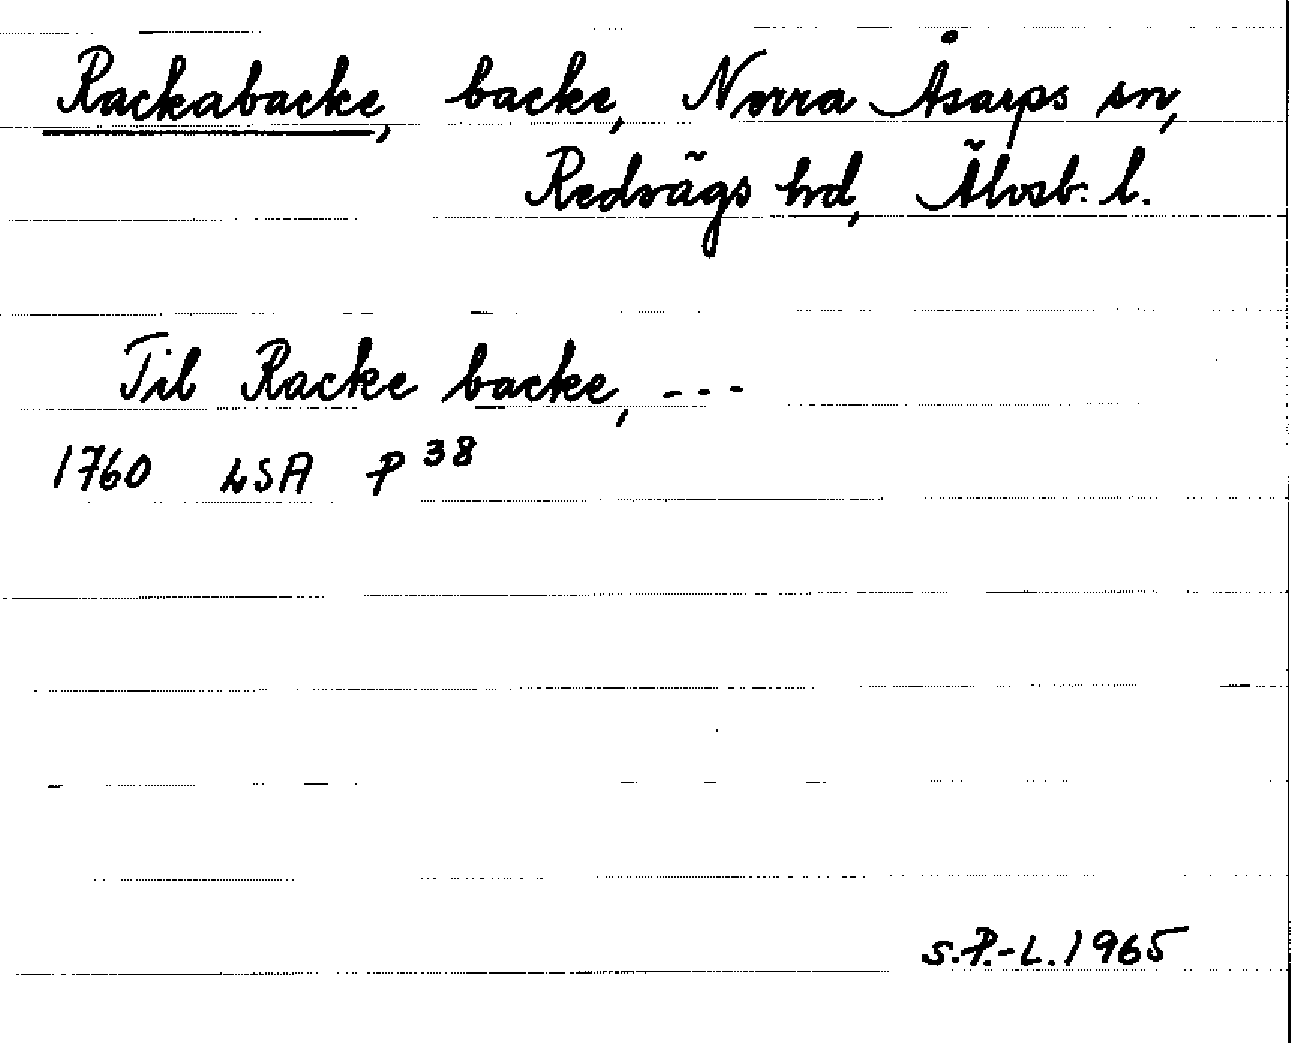 Rackabacke, backe, Norra Åsarps sn,
Redvägs hd, Älvsb. l.
Til Racke backe, ---
1760 LSA P 38
S.P.-L. 1965